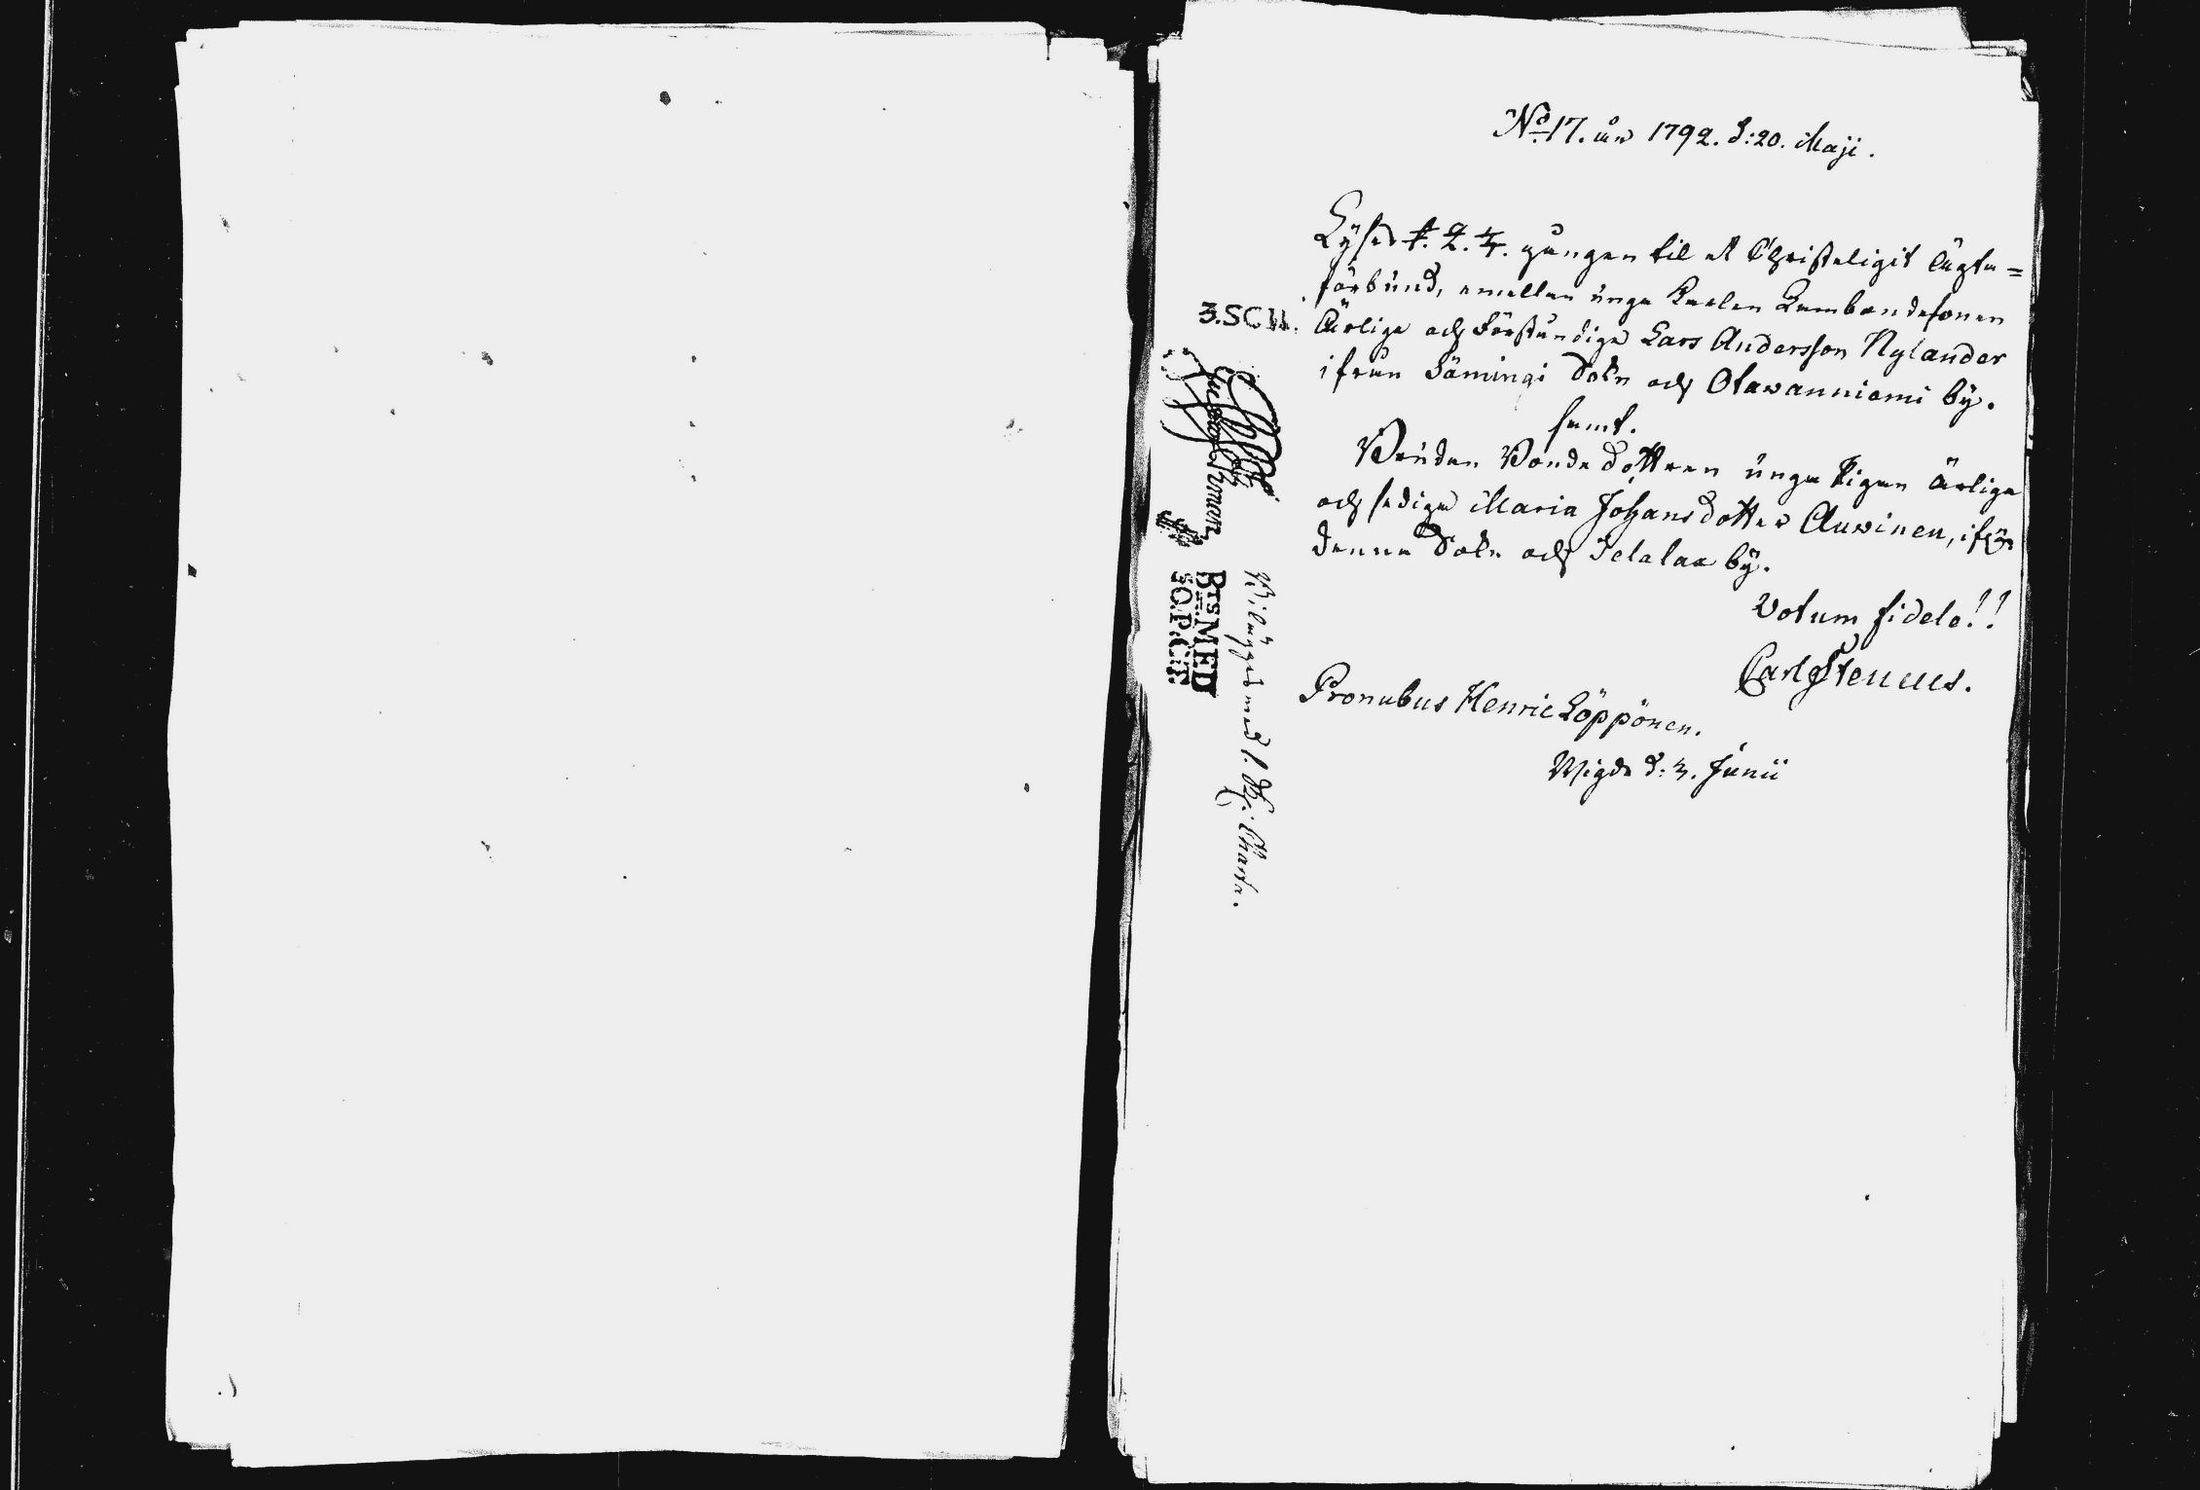 No 17. år 1792. d: 20. Maji.
Lyses 1. 2. 3. gången til et Christeligit Ägta=
förbund, emellan unga Karlen Lambondesonen
Ärlige och Förståndige Lars Andersson Nylander
ifrån Sämingi Sokn och Otavanniemi by.
samt.
Bruden Bondedottren unga Pigan ärliga
och sediga Maria Johansdotter Auvinen, ifrån
denna Sokn och Telalax by.
Votum fidele!!
Carl Stenius.
Pronubus Henric Löppönen.
Wigde d: 3. Junii
3. SCH.
BTS. MED
med 1. Charta.